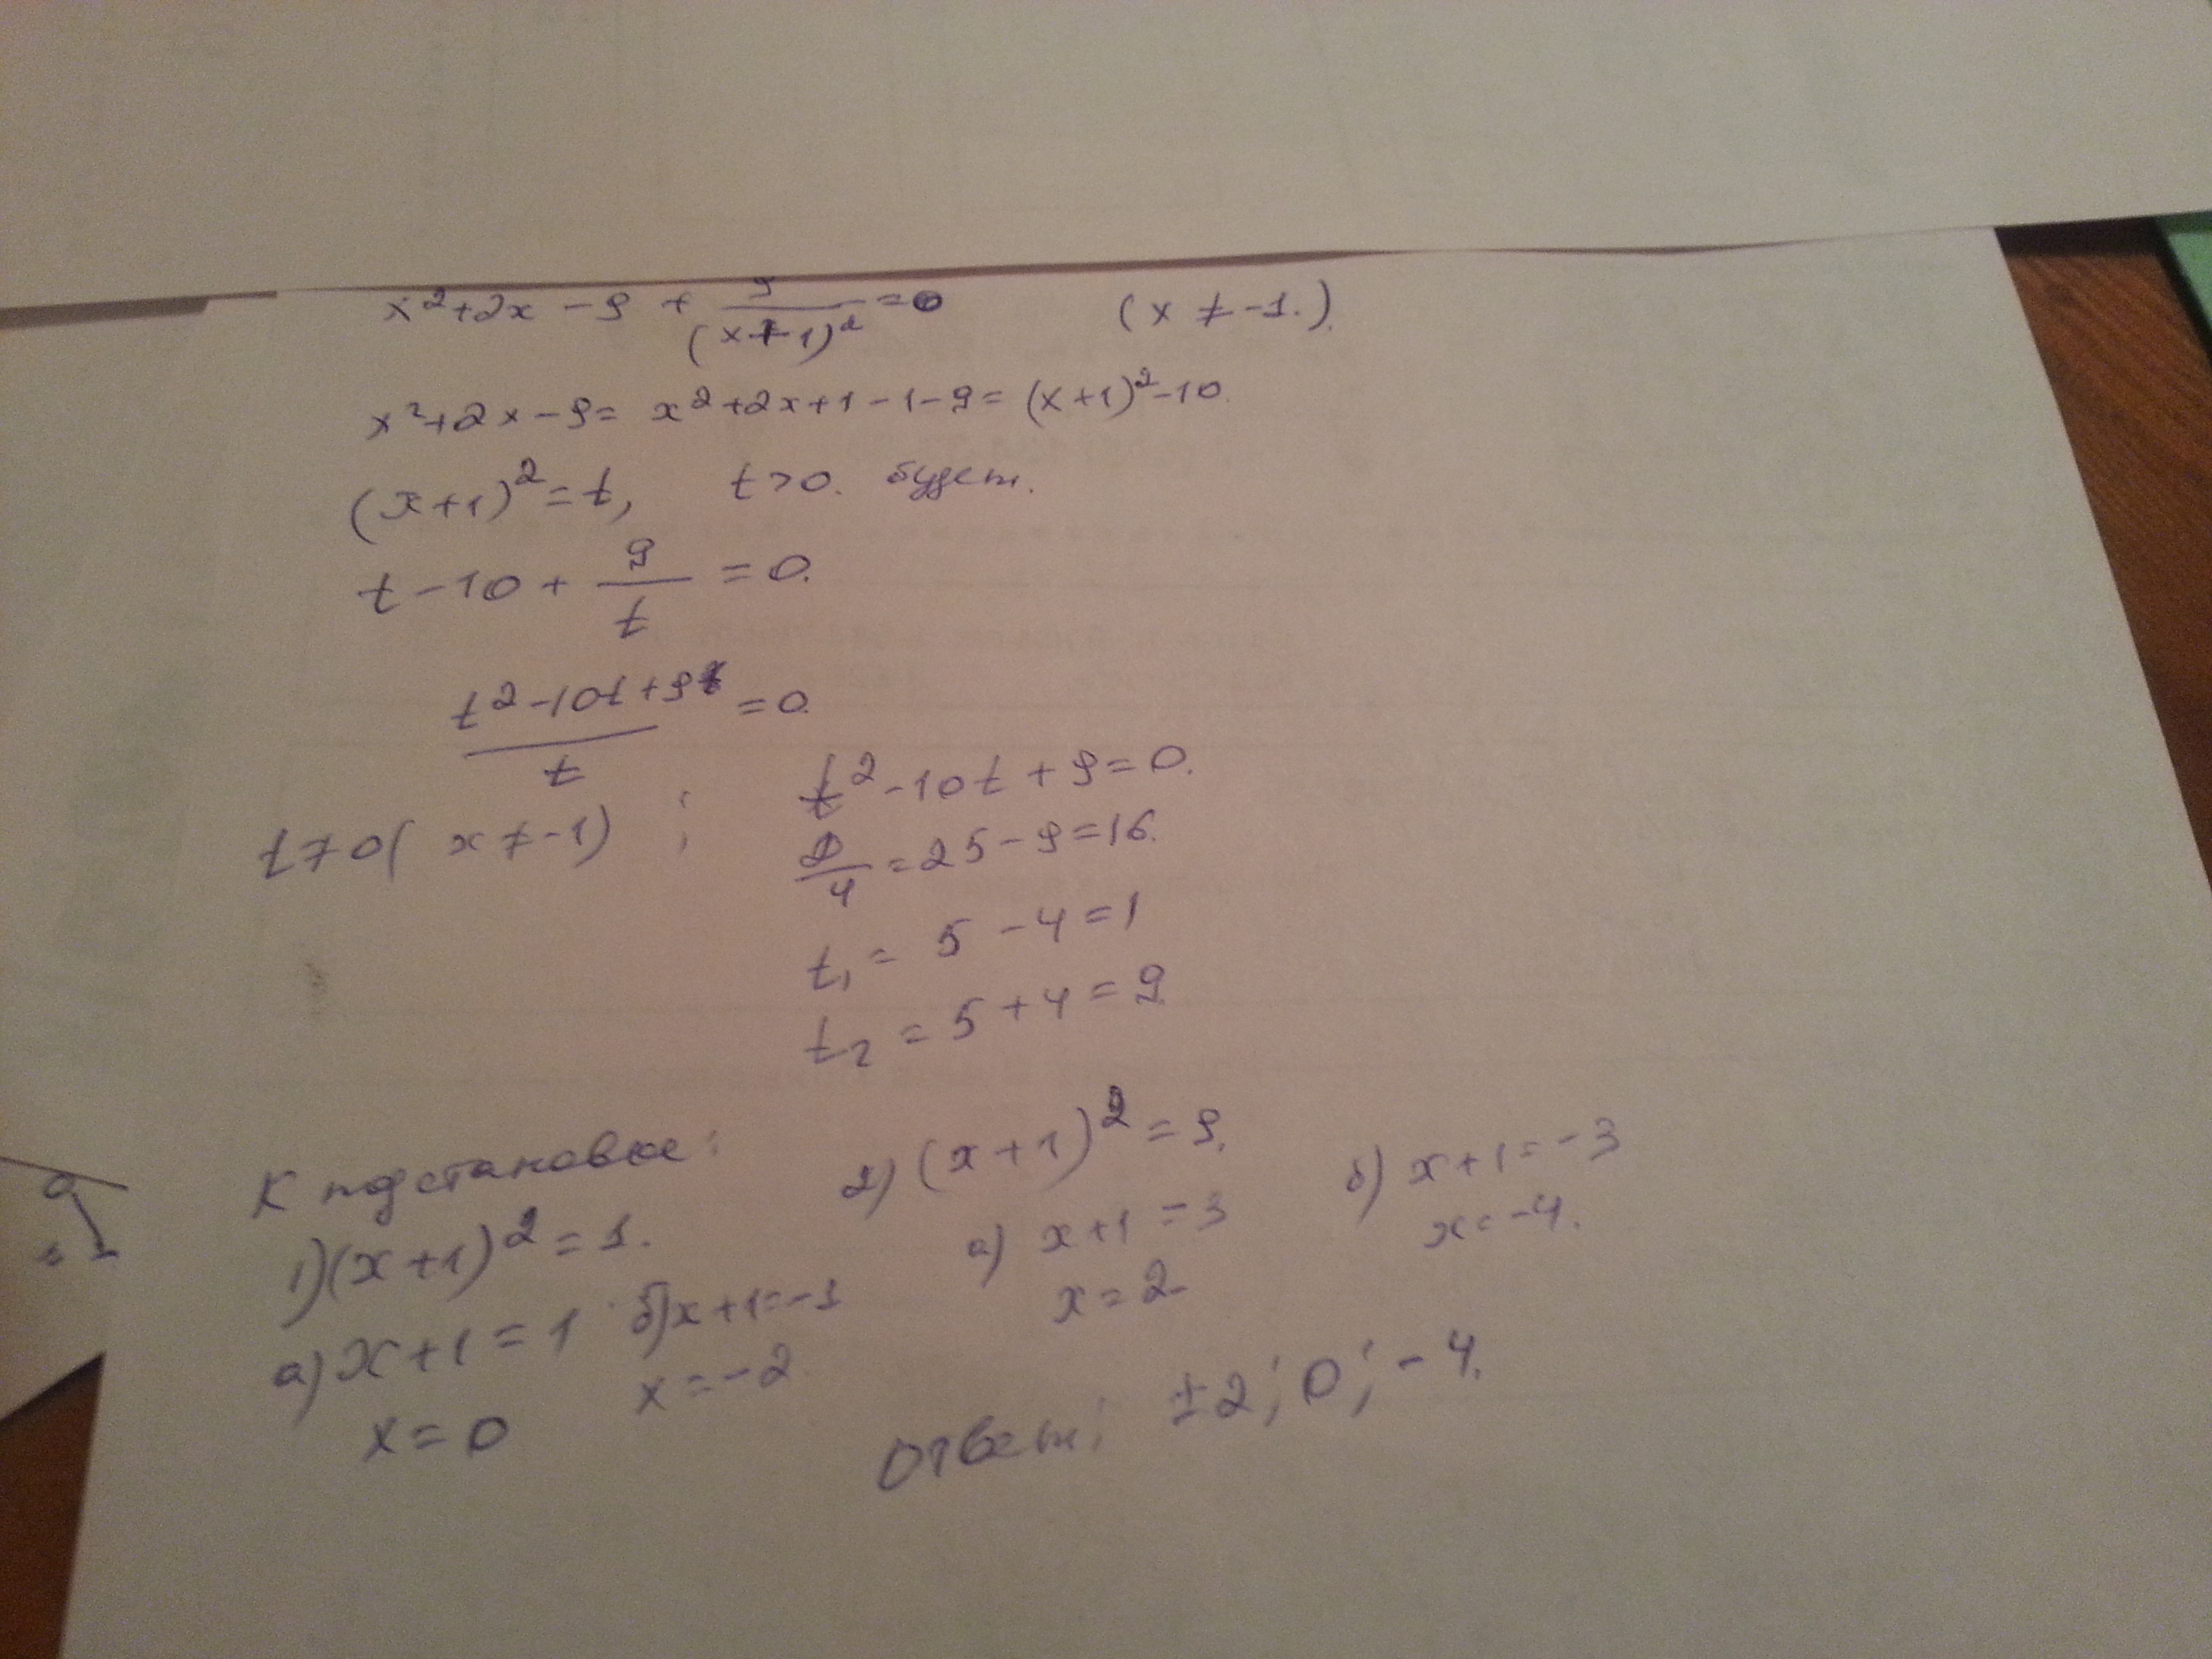 x²+2x-9 + 9/(x+1)² = 0 (x ≠ -1.)
x²+2x-9= x²+2x+1-1-9= (x+1)²-10.
(x+1)²=t, t>0. будет.
t-10+ 9/t =0.
(t²-10t+9)/t =0.
t≠0( x≠-1) ; t²-10t+9=0.
D/4 =25-9=16.
t₁= 5-4=1
t₂=5+4=9
К подстановке:
1)(x+1)²=1. 2) (x+1)²=9.
а)x+1=1 б)x+1=-1 а) x+1=3 б) x+1=-3
x=0 x=-2 x=2 x=-4.
Ответ: ±2; 0; -4.